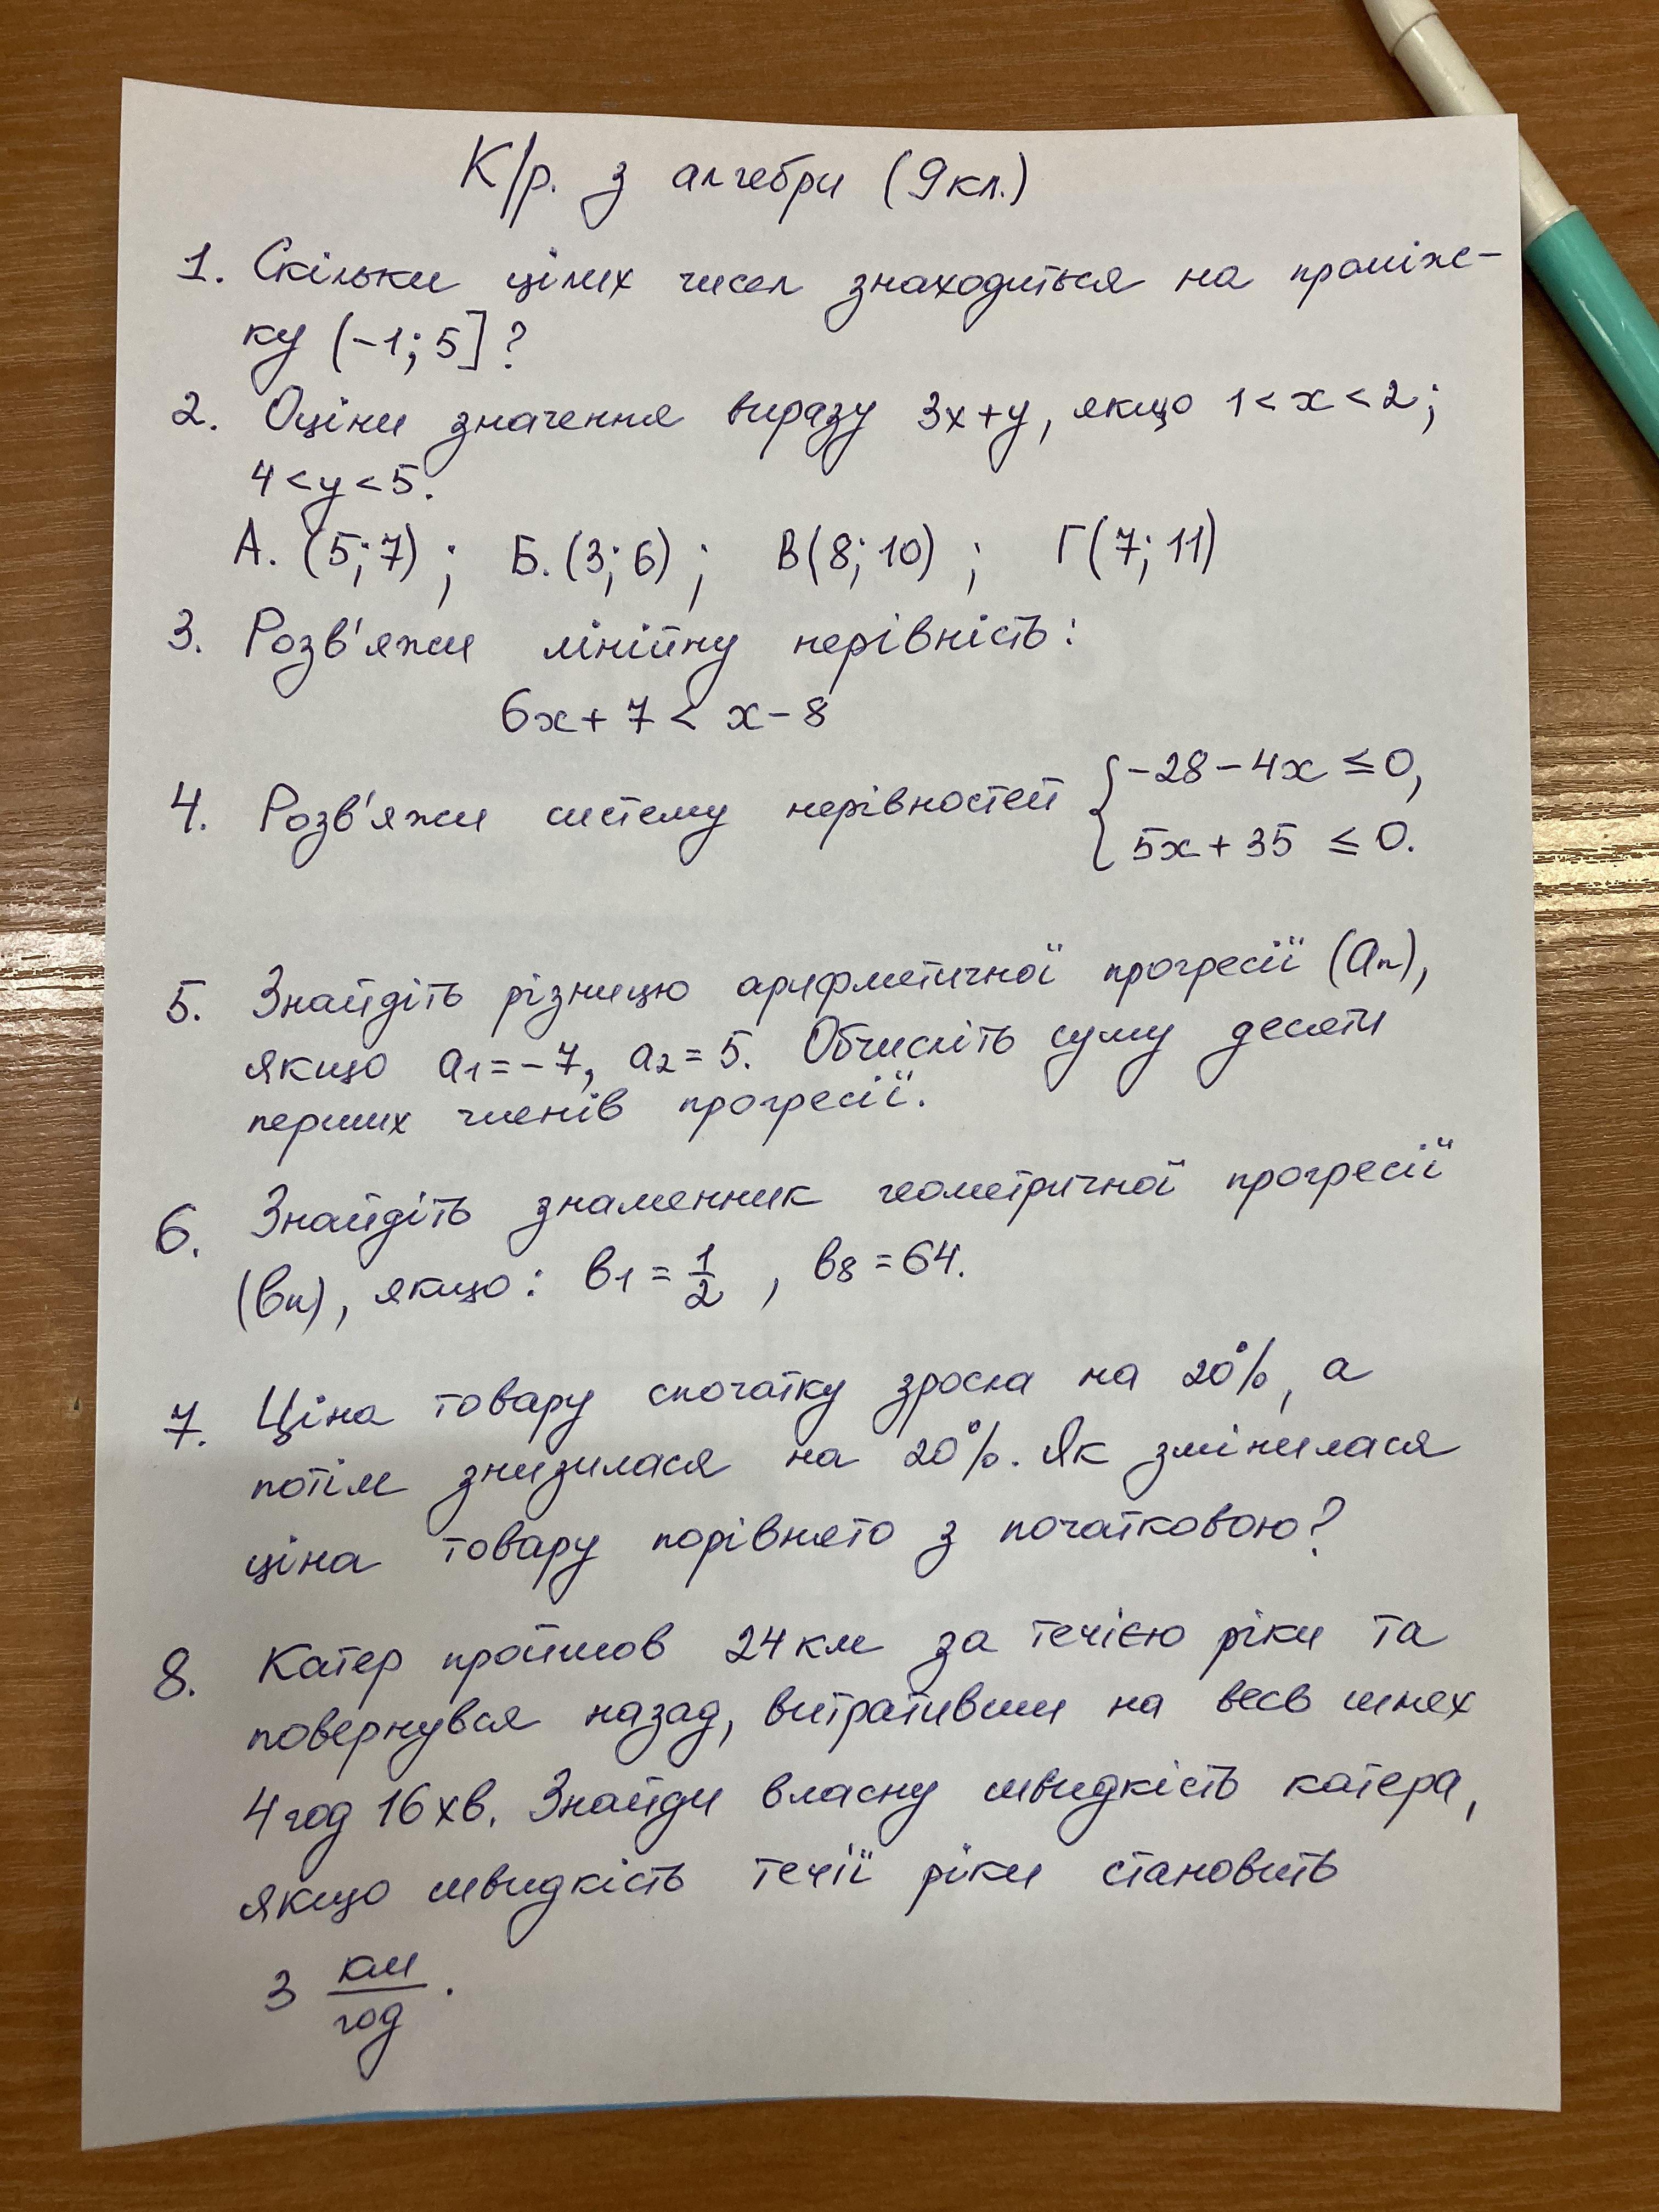 К/р. з алгебри (9кл.)
1. Скільки цілих чисел знаходиться на проміж-
ку (-1; 5]?
2. Оціни значення виразу 3x+y, якщо 1<x<2;
4<y<5.
А. (5; 7) ; Б. (3; 6) ; В(8; 10) ; Г(7; 11)
3. Розв'яжи лінійну нерівність:
6x+7< x-8
4. Розв'яжи систему нерівностей { -28-4x ≤0,
5x+35 ≤0.
5. Знайдіть різницю арифметичної прогресії (aₙ),
якщо a₁=-7, a₂=5. Обчисліть суму десяти
перших членів прогресії.
6. Знайдіть знаменник геометричної прогресії
(вₙ), якщо: в₁=1/2 , в₈=64.
7. Ціна товару спочатку зросла на 20%, а
потім знизилася на 20%. Як змінилася
ціна товару порівняно з початковою?
8. Катер пройшов 24км за течією ріки та
повернувся назад, витративши на весь шлях
4год 16хв. Знайди власну швидкість катера,
якщо швидкість течії ріки становить
3 км/год.